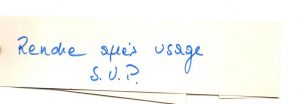 Rendre après usage
S.V.P.